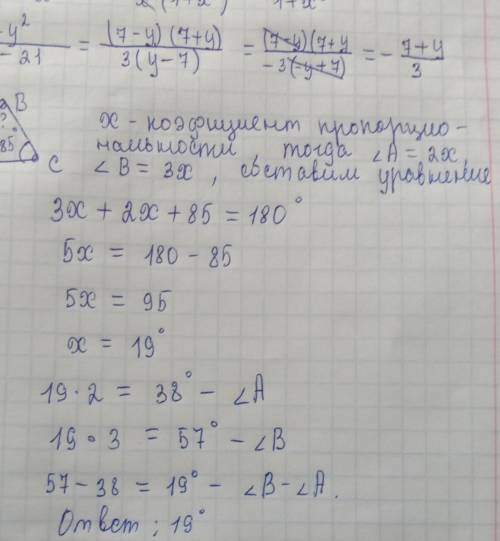 -y² / - 21 = (7-y)(7+y) / 3(y-7) = (7-y)(7+y / -3(-y+7) = - 7+y / 3
B
?
85°
C
x - коэфициент пропорцио-
нальности тогда ∠A = 2x,
∠B = 3x, составим уравнение
3x + 2x + 85 = 180°
5x = 180 - 85
5x = 95
x = 19°
19·2 = 38° - ∠A
19·3 = 57° - ∠B
57-38 = 19° - ∠B-∠A.
Ответ: 19°